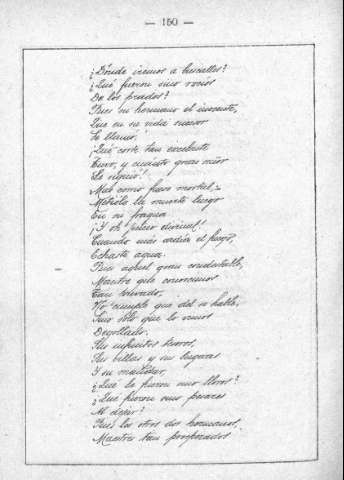 — 150 —
¿Dónde iremos a buscallos?
¿Qué fueron sino rocíos
De los prados?
Pues su hermano el inocente,
Que en su vida sucesor
Le llamó!
¡Qué corte tan excelente
Tuvo, y cuánto gran señor
Le siguió!
Mas como fuese mortal,
Metiólo la muerte luego
En su fragua
¡Y oh juicio divinal!
Cuando más ardía el fuego,
Echaste agua.
Pues aquel gran condestable,
Maestre que conocimos
Tan privado,
No cumple que del se hable,
Sino sólo que lo vimos
Degollado.
Sus infinitos tesoros,
Sus villas y sus lugares
Y su mandar,
¿Qué le fueron sino lloros?
¿Qué fueron sino pesares
Al dejar?
Pues los otros dos hermanos,
Maestres tan prosperados